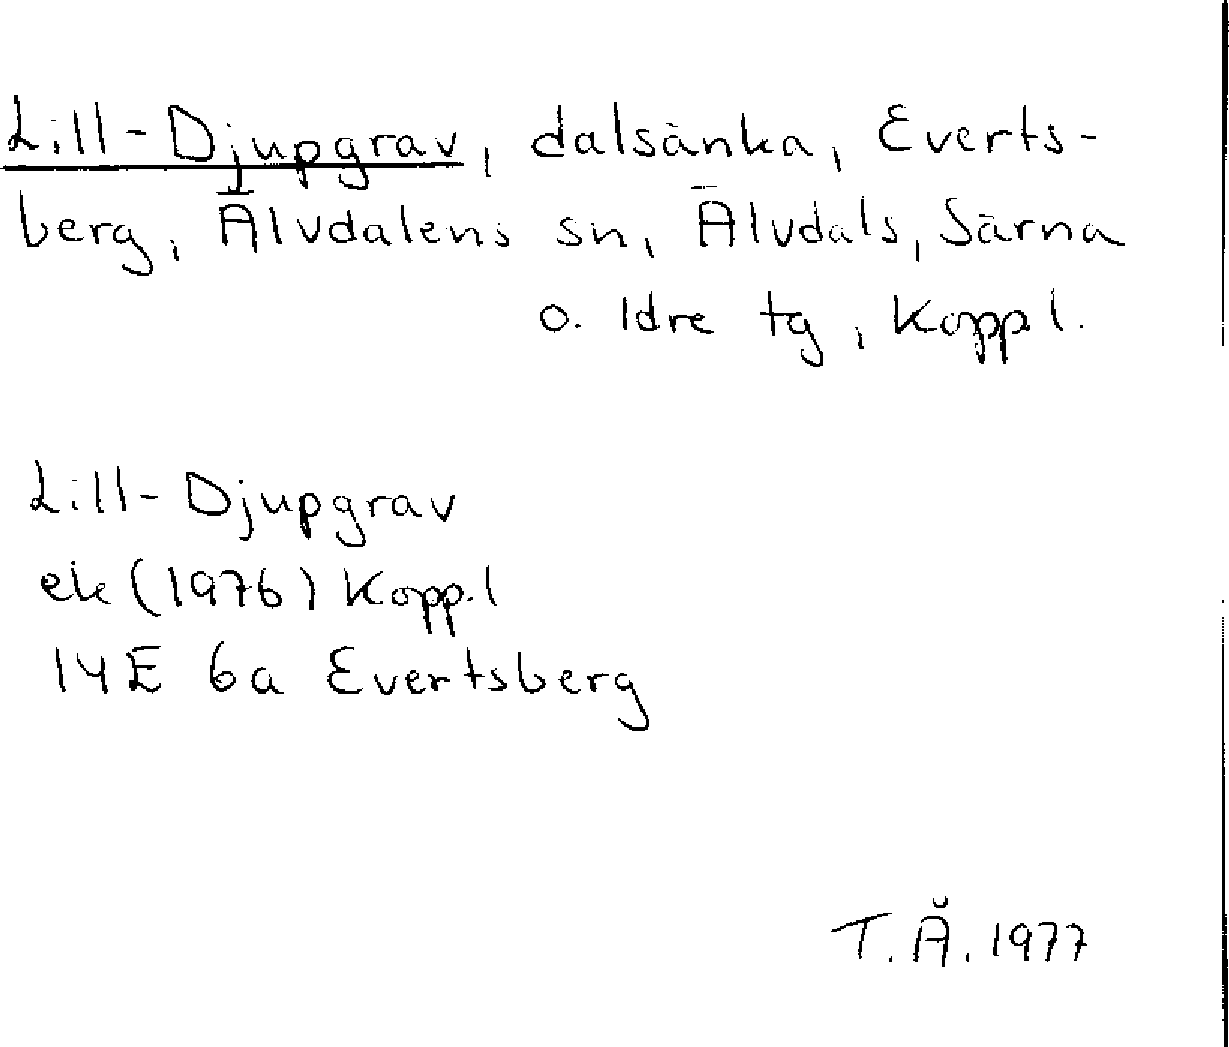 Lill-Djupgrav, dalsänka, Everts-
berg, Älvdalens sn, Älvdals, Särna
o. Idre tg, Koppl.
Lill-Djupgrav
ek (1976) Kopp.l
14E 6a Evertsberg
T.Å. 1977